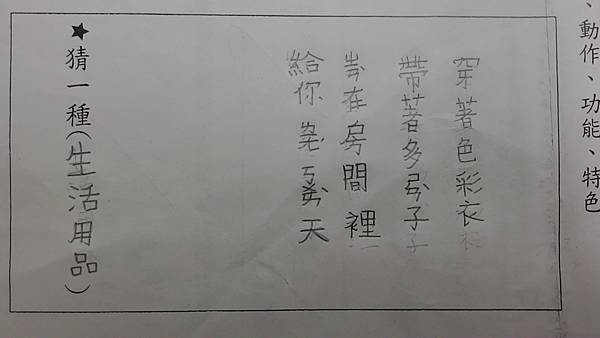 、動作、功能、特色
穿著色彩衣
帶著多子
在房間裡
給你天
★猜一種(生活用品)